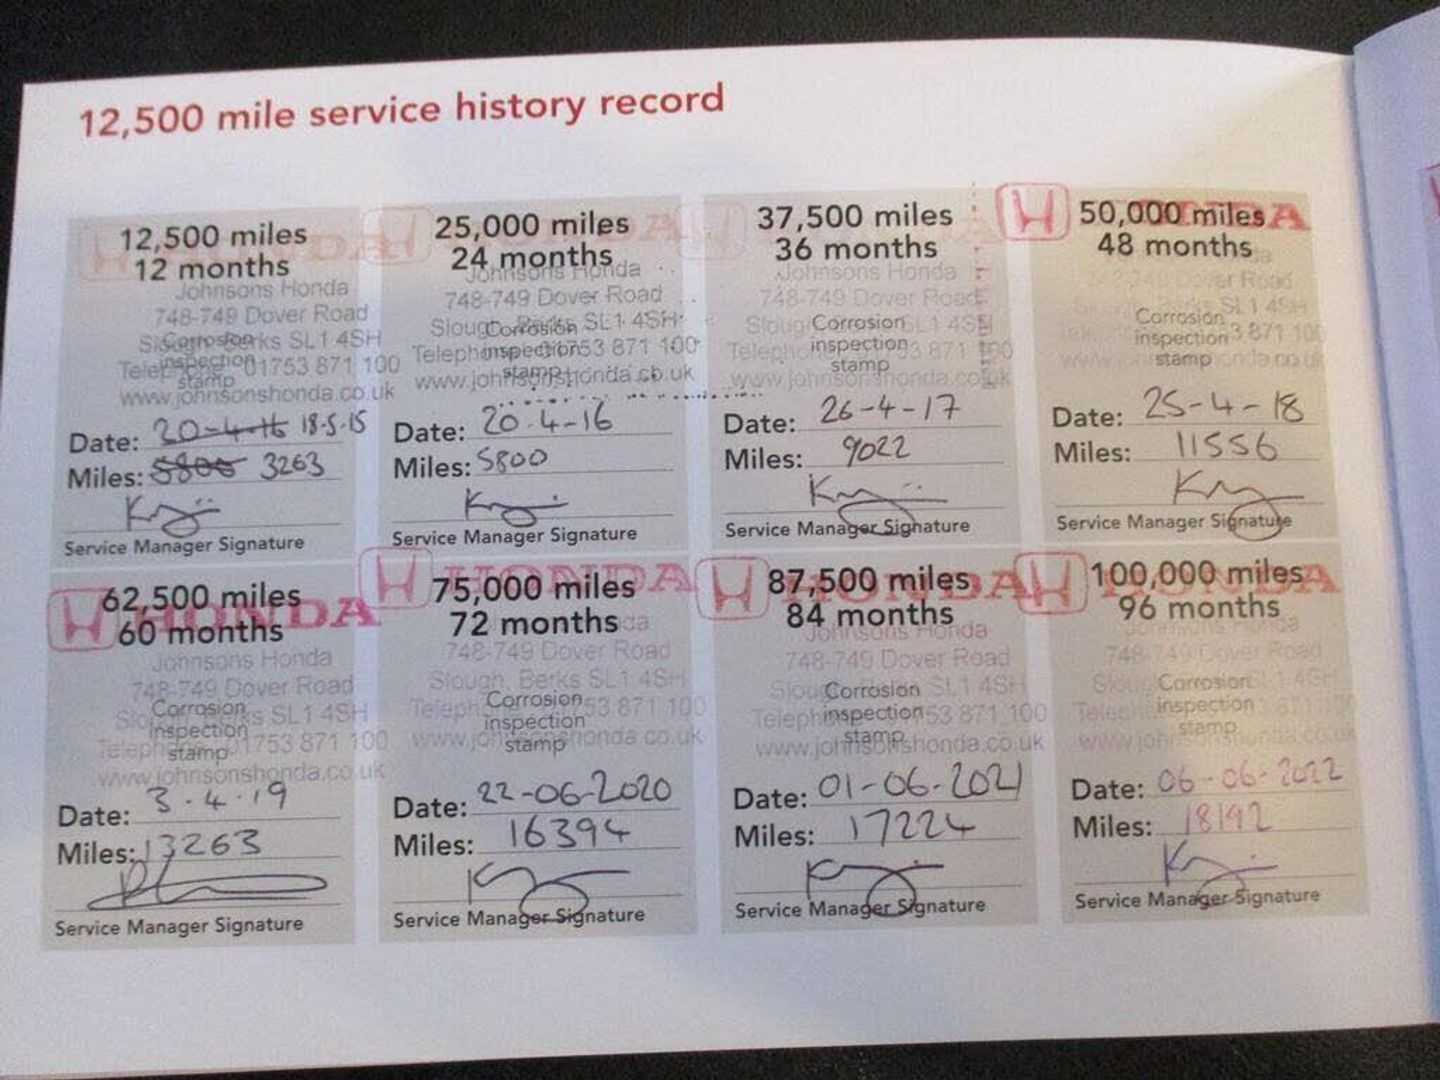 12,500 mile service history record
HONDA
12,500 miles
12 months
Johnsons Honda
748-749 Dover Road
SL1 4SH
Corrosion
inspection
stamp
01753 871 100
www.johnsonshonda.co.uk
Date: 20-4-16 18-5-15
Miles: 5800 3263
Service Manager Signature
HONDA
25,000 miles
24 months
Johnsons Honda
748-749 Dover Road
Slough, Berks SL1 4SH
Corrosion
inspection
stamp
Telephone 01753 871 100
www.johnsonshonda.co.uk
Date: 20-4-16
Miles: 5800
Service Manager Signature
37,500 miles
36 months
Johnsons Honda
748-749 Dover Road
Slough SL1 4SH
Corrosion
inspection
stamp
Telephone 01753 871 100
www.johnsonshonda.co.uk
Date: 26-4-17
Miles: 9022
Service Manager Signature
HONDA
50,000 miles
48 months
Dover Road
SL1 4SH
Corrosion
inspection
stamp
871 100
Date: 25-4-18
Miles: 11556
Service Manager Signature
HONDA
62,500 miles
60 months
Johnsons Honda
748-749 Dover Road
SL1 4SH
Corrosion
inspection
stamp
01753 871 100
www.johnsonshonda.co.uk
Date: 3.4.19
Miles: 13263
Service Manager Signature
HONDA
75,000 miles
72 months
748-749 Dover Road
Slough, Berks SL1 4SH
Corrosion
inspection
stamp
871 100
www.johnsonshonda.co.uk
Date: 22-06-2020
Miles: 16394
Service Manager Signature
HONDA
87,500 miles
84 months
Johnsons Honda
748-749 Dover Road
SL1 4SH
Corrosion
inspection
stamp
871 100
www.johnsonshonda.co.uk
Date: 01-06-2021
Miles: 17224
Service Manager Signature
HONDA
100,000 miles
96 months
Johnsons Honda
748-749 Dover Road
Corrosion
inspection
stamp
Date: 06-06-2022
Miles: 18192
Service Manager Signature